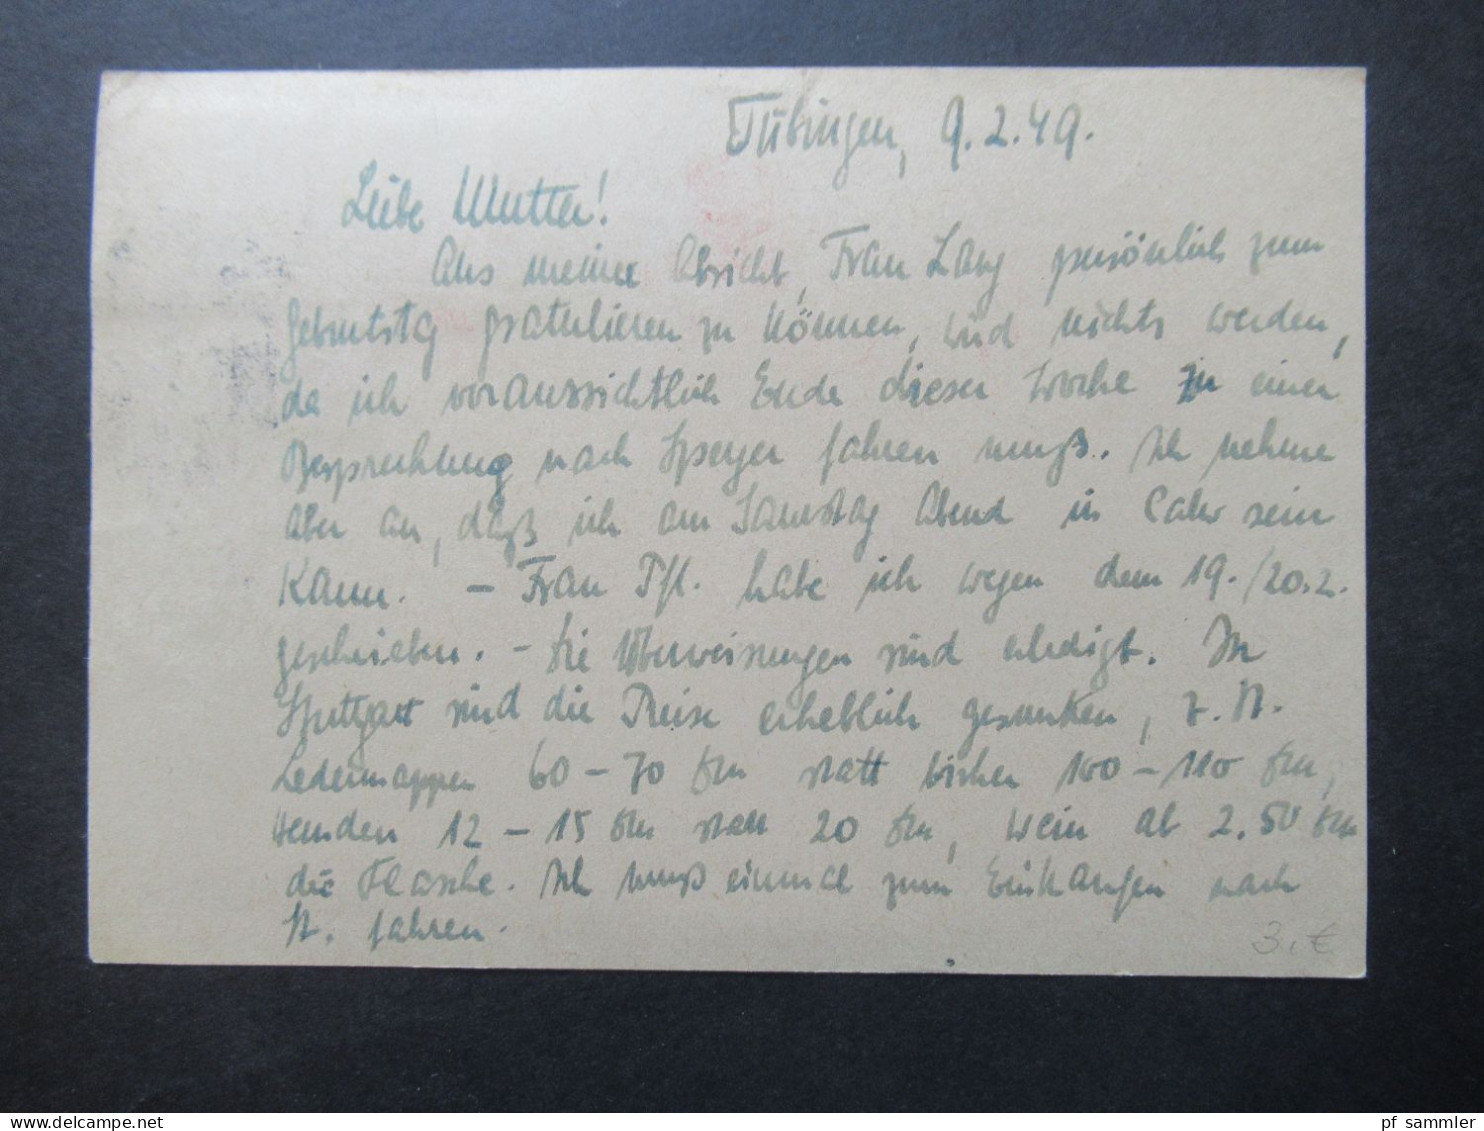 Tübingen, 9.2.49.
Liebe Mutter!
Aus meiner Absicht, Frau Lang persönlich zum
Geburtstag gratulieren zu können, wird nichts werden,
da ich voraussichtlich Ende dieser Woche zu einer
Besprechung nach Speyer fahren muß. Ich nehme
aber an, daß ich am Samstag Abend in Calw sein
kann. - Frau Pfl. habe ich wegen dem 19./20.2.
geschrieben. - Die Überweisungen sind erledigt. In
Stuttgart sind die Preise erheblich gesunken, z.B.
Ledermappen 60 - 70 Dm statt bisher 100 - 110 Dm,
Hemden 12 - 15 Dm statt 20 Dm, Wein ab 2.50 Dm
die Flasche. Ich muß einmal zum Einkaufen nach
St. fahren.
3.€
www.delcampe.net
pf_sammler